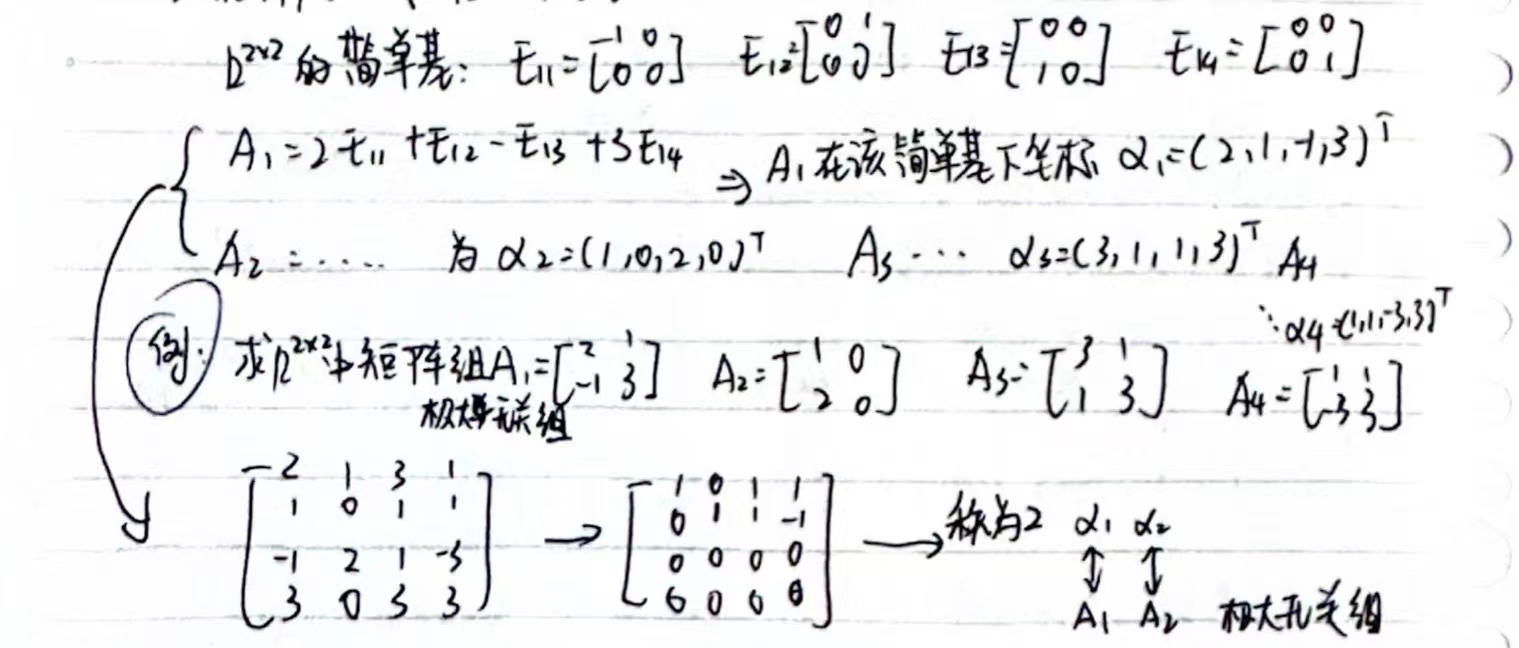 R^{2×2} 的简单基: E₁₁=[1 0; 0 0] E₁₂=[0 1; 0 0] E₁₃=[0 0; 1 0] E₁₄=[0 0; 0 1]
A₁=2E₁₁+E₁₂-E₁₃+3E₁₄ ⇒ A₁在该简单基下坐标 α₁=(2,1,-1,3)^T
A₂=..... 为 α₂=(1,0,2,0)^T A₃... α₃=(3,1,1,3)^T A₄
∵α₄=(1,1,-3,3)^T
例: 求R^{2×2}中矩阵组A₁=[2 1; -1 3] A₂=[1 0; 2 0] A₃=[3 1; 1 3] A₄=[1 1; -3 3]
极大无关组
[2 1 3 1; 1 0 1 1; -1 2 1 -3; 3 0 3 3] → [1 0 1 1; 0 1 1 -1; 0 0 0 0; 0 0 0 0] → 秩为2 α₁ α₂
↕ ↕
A₁ A₂ 极大无关组